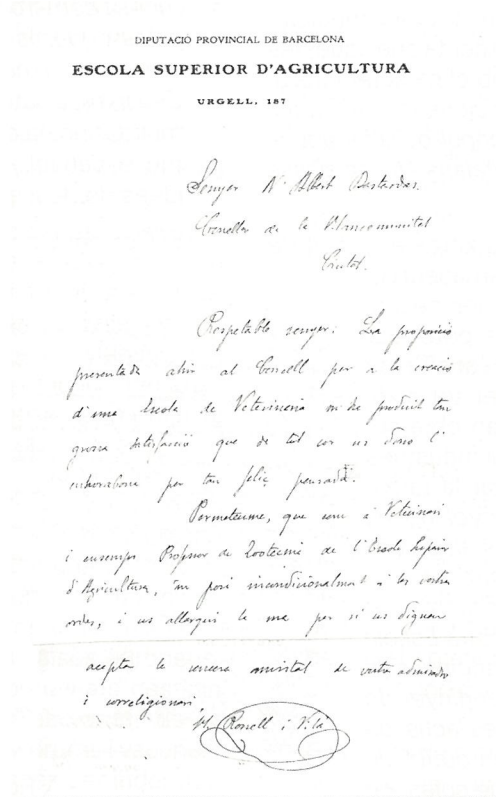 DIPUTACIÓ PROVINCIAL DE BARCELONA
ESCOLA SUPERIOR D'AGRICULTURA
URGELL, 187
Senyor N' Albert Bastardas.
Conceller de la Mancomunitat
Ciutat.
Respetable senyor: La proposició
presentada ahir al Concell per a la creació
d'una Escola de Veterinaria m'ha produit tan
grossa satisfacció que de tot cor us dono l'
enhorabona per tan feliç pensada.
Permeteume, que com á Veterinari
i ensemps Professor de Zootecnia de l'Escola Superior
d'Agricultura, 'm posi incondicionalment á les vostres
ordes, i us allargui la ma per si us digneu
acepta la sincera amistat de vostre admirador
i correligionari,
M. Rossell i Vilá